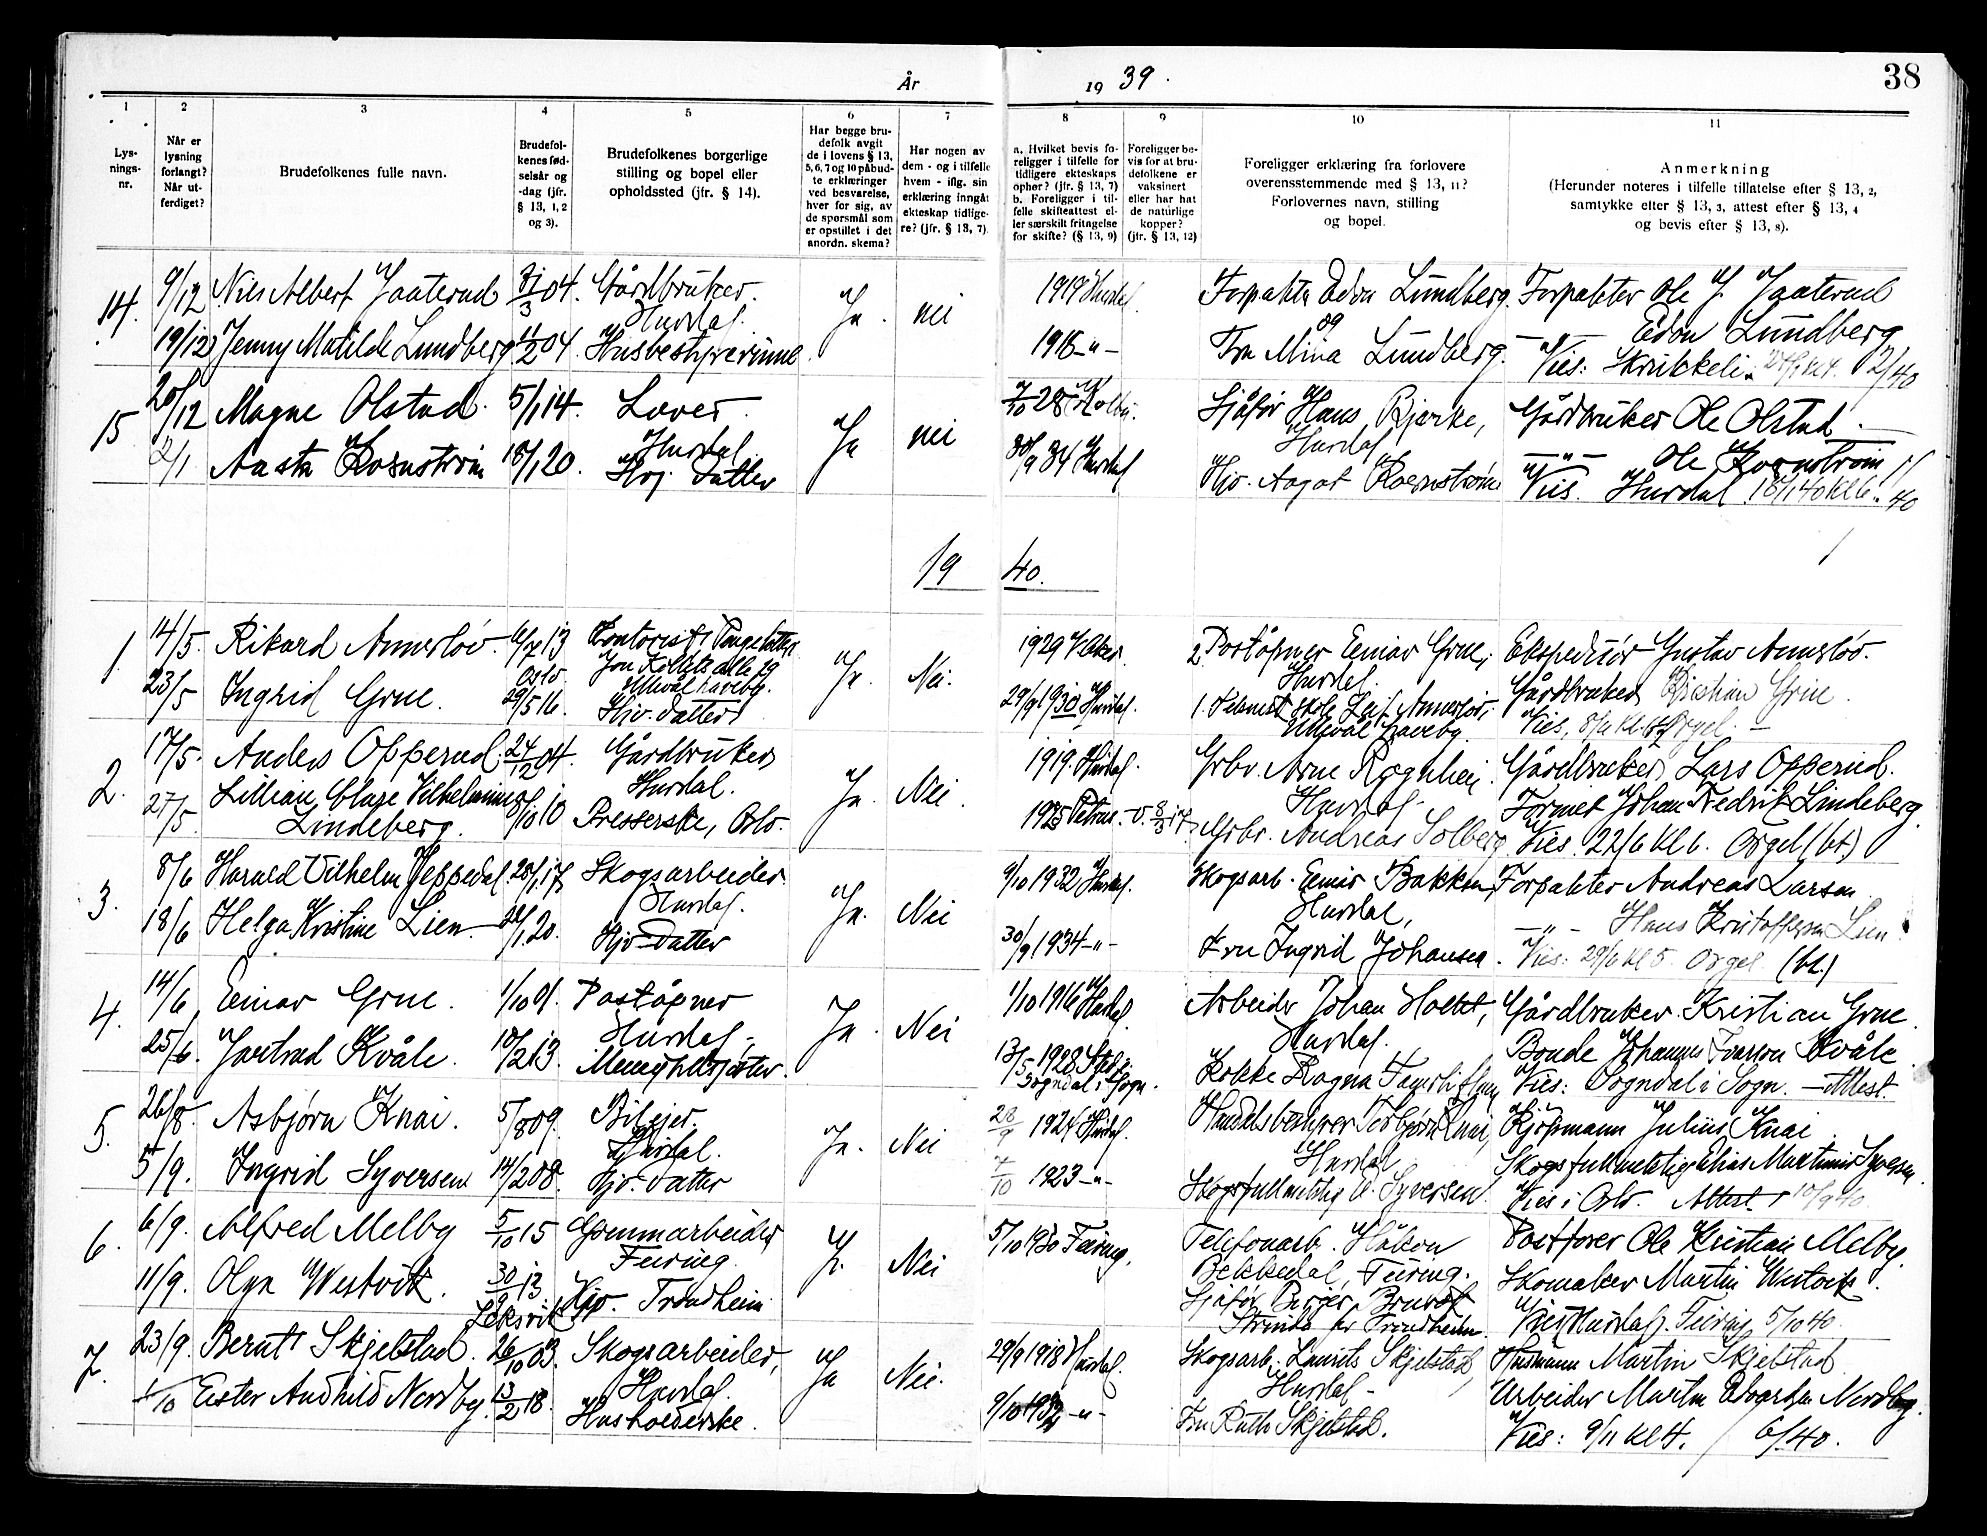 38
År 1939.
1 2 3 4 5 6 7 8 9 10 11
Lys-
nings-
nr.
Når er
lysning
forlangt?
Når ut-
ferdiget?
Brudefolkenes fulle navn.
Brudefol-
kenes fød-
selsår og
-dag (jfr.
§ 13, 1, 2
og 3).
Brudefolkenes borgerlige
stilling og bopel eller
opholdssted (jfr. § 14).
Har begge bru-
defolk avgit
de i lovens § 13,
5, 6, 7 og 10 påbud-
te erklæringer
ved besvarelse,
hver for sig, av
de spørsmål som
er opstillet i det
anordn. skema?
Har nogen av
dem - og i tilfelle
hvem - iflg. sin
erklæring inngåt
ekteskap tidlige-
re? (jfr. § 13, 7).
a. Hvilket bevis fo-
religger i tilfelle for
tidligere ekteskaps
ophør? (jfr. § 13, 7)
b. Foreligger i til-
felle skifteattest el-
ler særskilt fritagelse
for skifte? (§ 13, 9)
Foreligger be-
vis for at bru-
defolkene er
vaksinert
eller har hat
de naturlige
kopper?
(jfr. § 13, 12)
Foreligger erklæring fra forlovere
overensstemmende med § 13, 11?
Forlovernes navn, stilling
og bopel.
Anmerkning
(Herunder noteres i tilfelle tillatelse efter § 13, 2,
samtykke efter § 13, 3, attest efter § 13, 4
og bevis efter § 13, 8).
14. 9/12 Nils Albert Jaaterud 31/3 04. Gårdbruker. Ja. nei 1919 Hurdal. Forpakter Edon Lundberg. Forpakter Ole J. Jaaterud
Hurdal. og — Edon Lundberg
19/12 Jenny Matilde Lundberg 11/2 04. Husbestyrerinne 1918 -"- Fru Mina Lundberg. Vies: Skrukkeli. 2/40
15 20/12 Magne Olstad. 5/1 14. Laver. Ja nei 7/10 28 Kolbu. Sjåfør Hans Bjerke, Gårdbruker Ole Olstad
Hurdal Hurdal -"- Ole Kornstrøm
2/1 Aasta Kornstrøm 18/1 20. Hj. Datter 30/9 34 Hurdal Hjv. Aagot Kornstrøm Vies. Hurdal 18/1 40 kl 6. 1/40
1940.
1. 14/5. Rikard Annerløv 6/7 13 Kontorist, Ja. Nei. 1929 V. Aker. 2. Poståpner Einar Grue, Ekspeditør Gustav Annerløv.
Oslo. Ullevål haveby. Hurdal. Gårdbruker Kristian Grue.
23/5 Ingrid Grue. 29/5 16. Hjv. datter 29/9 1930 Hurdal. 1. Leif Annerløv, Ullevål haveby. Vies, Orgel —
2. 17/5. Anders Opperud. 24/12 04. Gårdbruker Ja. Nei. 1919 Hurdal. Grbr. Arne Rognhei Gårdbruker Lars Opperud.
27/5. Lillian Clare Vilhelmine 10 Hurdal. Hurdal Formet Johan Fredrik Lindeberg.
Lindeberg. Presserske, Oslo. 1925 Petrus. Grbr. Andreas Solberg Vies. 22/6 kl 6. Orgel (bt.)
3. 8/6 Harald Vilhelm Jeppedal. 28/1 17 Skogsarbeider Ja. Nei 9/10 1932 Hurdal. Skogsarb. Einar Bakken, Forpakter Andreas Larsen
Hurdal. Hurdal, -"- Hans Kristoffersen Lien
18/6 Helga Kristine Lien 1 20. Hjv. datter 30/9 1934 -"- Fru Ingrid Johansen. Vies: 29/6 kl 5. Orgel (bt.)
4. 14/6 Einar Grue. 1/10 01. Poståpner Ja. Nei 1/10 1916 Hurdal. Arbeider Johan Holtet, Gårdbruker Kristian Grue.
Hurdal, Hurdal. Bonde Johannes Iverson Kvåle
25/6. Jartrud Kvåle. 18/2 13. Menighetssøster. 13/5 1928 Sogndal i Sogn. Kokke Ragna Vies: Sogndal i Sogn. — Attest.
5. 26/8. Asbjørn Knai. 5/8 09. Bileier. Ja. Nei 28/9 1924 Hurdal. Handelsbestyrer Torbjørn Knai, Kjøpmann Julius Knai.
Hurdal. Hurdal Skogsfullmektig Elias Martinius Syversen.
5/9. Ingrid Syversen 14/2 08. Hjv. datter 7/10 1923 -"- Skogsfullmektig E. Syversen. Vies i Oslo. Attest 10/9 40.
6. 6/9. Alfred Melby 5/10 15 Grømmarbeider Ja. Nei 5/10 1930 Feiring. Telefonarb. Håkon Postfører Ole Kristian Melby.
Feiring. Bekkedal, Feiring. Skomaker Martin Westvik.
11/9. Olga Westvik. 30/9 13 Hjv. Trondheim Sjåfør Birger Strinda pr Trondheim. Vies (Hurdal). Feiring 5/10 40.
Leksvik
7. 23/9. Bernt Skjelstad. 26/10 03. Skogsarbeider, Ja Nei. 29/9 1918 Hurdal. Skogsarb. Laurits Skjelstad, Husmann Martin Skjelstad
Hurdal. Hurdal - Arbeider Martin Edvardsen Nordby.
1/10 Ester Audhild Nordby. 13/2 18. Husholderske. 9/10 1932 -"- Fru Ruth Skjelstad. Vies: 9/11 kl 4. / 6/40.